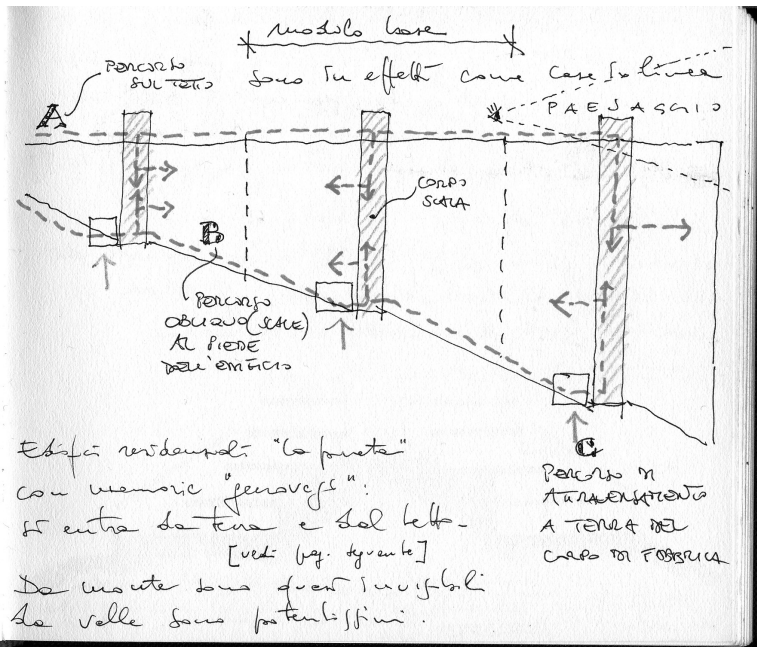 modulo base
sono in effetti come case in linea
PERCORSO
SUL TETTO
A
PAESAGGIO
CORPO
SCALA
B
PERCORSO
OBLIQUO (SCALE)
AL PIEDE
DELL'EDIFICIO
C
PERCORSO DI
ATTRAVERSAMENTO
A TERRA DEL
CORPO DI FABBRICA
Edifici residenziali "la
con memorie "genovesi":
si entra da terra e dal tetto -
[vedi pag. seguente]
Da monte sono quasi invisibili
da valle sono potentissimi.